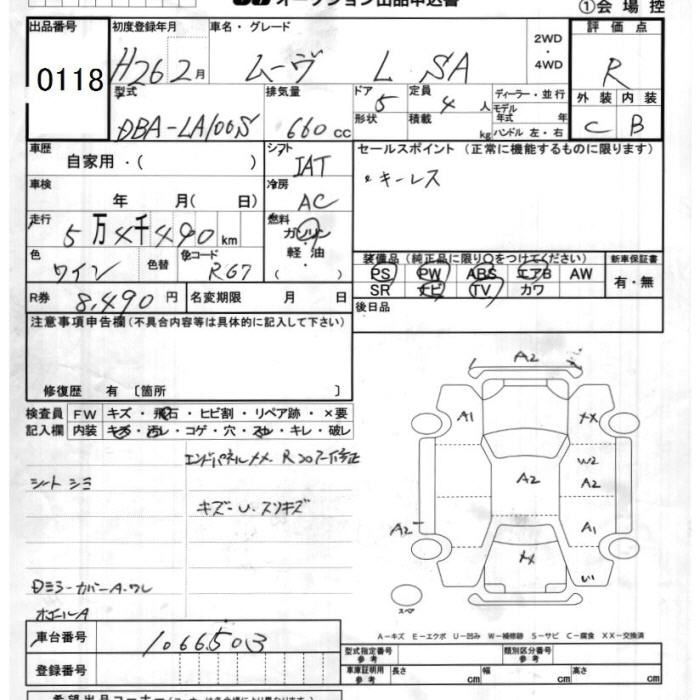 オークション出品申込書
①会場控
出品番号 初度登録年月 車名・グレード 評価点
0118 H26 2月 ムーヴ L SA 2WD ・ 4WD R
型式 排気量 ドア 定員 ディーラー・並行 外装 内装
DBA-LA100S 660cc 5 4人 モデル年式 年 C B
形状 積載 kg ハンドル 左・右
車歴 シフト セールスポイント (正常に機能するものに限ります)
自家用・( ) IAT キーレス
車検 冷房
年 月( 日) AC
走行 燃料
5万4千490km ガソリン・軽油( )
色 色替 色コード 装備品 (純正品に限り○をつけてください) 新車保証書
ワイン R67 PS PW ABS エアB AW 有・無
SR ナビ TV カワ
R券 8,490円 名変期限 月 日 後日品
注意事項申告欄(不具合内容等は具体的に記入して下さい)
修復歴 有 〔箇所 〕
検査員 FW キズ・飛石・ヒビ割・リペア跡・×要
記入欄 内装 キズ・汚レ・コゲ・穴・スレ・キレ・破レ
A2
A1 XX
エンドパネルXX
W2
シートシミ A2 A2
キズ-U.スリキズ
A2 A1
X
Dミラーカバー A.ワレ
スペア
A-キズ E-エクボ U-凹み W-補修跡 S-サビ C-腐食 XX-交換済
車台番号 1066503
型式指定番号 参考 類別区分番号 参考
車庫証明用 参考 長さ cm 幅 cm 高さ cm
登録番号
希望出品コーナー